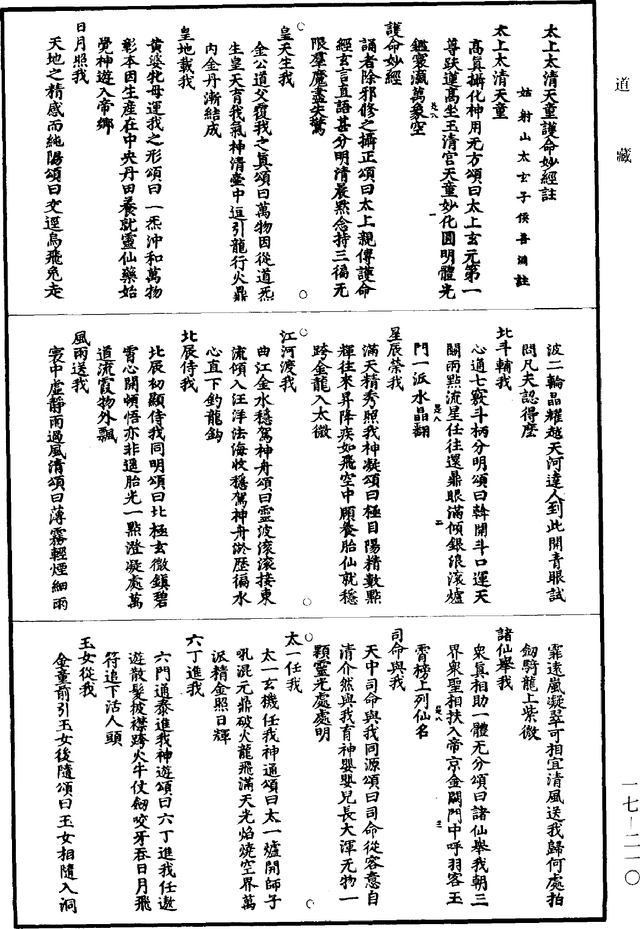 道藏
一七—二一〇
太上太清天童護命妙經註
姑射山太玄子侯善淵註
太上太清天童
高真攝化神用无方頌曰太上玄元第一
尊跃運高坐玉清宮天童妙化圓明體光
鑑寰瀛萬象空
護命妙經
誦者除邪修之攝正頌曰太上親傳護命
經玄言直語甚分明清晨點念持三徧无
限羣魔盡失驚
皇天生我
金公道父覆我之真頌曰萬物因從道炁
生皇天育我氣神清臺中逗引龍行火鼎
內金丹漸結成
皇地載我
黃婆牝母運我之形頌曰一炁沖和萬物
彰本因生產在中央丹田養就靈仙藥始
覺神遊入帝鄉
日月照我
天地之精感而純陽頌曰交逕烏飛兔走
波二輪晶耀越天河達人到此開青眼試
問凡夫認得麼
北斗輔我
心通七竅斗柄分明頌曰斡開斗口運天
關兩點流星任往還鼎眼滿傾銀浪滾爐
門一派水晶翻
星辰榮我
滿天精秀照我神凝頌曰極目陽精數點
輝往來昇降疾如飛空中願養胎仙就穩
跨金龍入太微
江河渡我
曲江金水穩駕神舟頌曰靈波滚滚接東
流傾入汪洋法海收穩駕神舟㳺歷徧水
心直下釣龍鈎
北辰侍我
北辰初顯侍我同明頌曰北極玄微鎮碧
霄心開頓悟亦非遥胎光一點澄凝處萬
道流霞物外飄
風雨送我
寰中虛静雨過風清頌曰薄霧輕煙細雨
霏遠嵐凝翠可相宜清風送我歸何處拍
劒騎龍上紫微
諸仙舉我
衆真相助一體无分頌曰諸仙舉我朝三
界衆聖相扶入帝京金闕門中呼羽客玉
霄榜上列仙名
司命與我
天中司命與我同源頌曰司命從容意自
清介然與我育神嬰嬰兒長大渾无物一
顆靈光處處明
太一任我
太一玄機任我神通頌曰太一爐開師子
吼混元鼎破火龍飛滿天光焰燒空界萬
派精金照日輝
六丁進我
六門通泰進我神遊頌曰六丁進我任遨
遊散髮披襟跨火牛仗劒咬牙吞日月飛
符追下活人頭
玉女從我
金童前引玉女後隨頌曰玉女相隨入洞